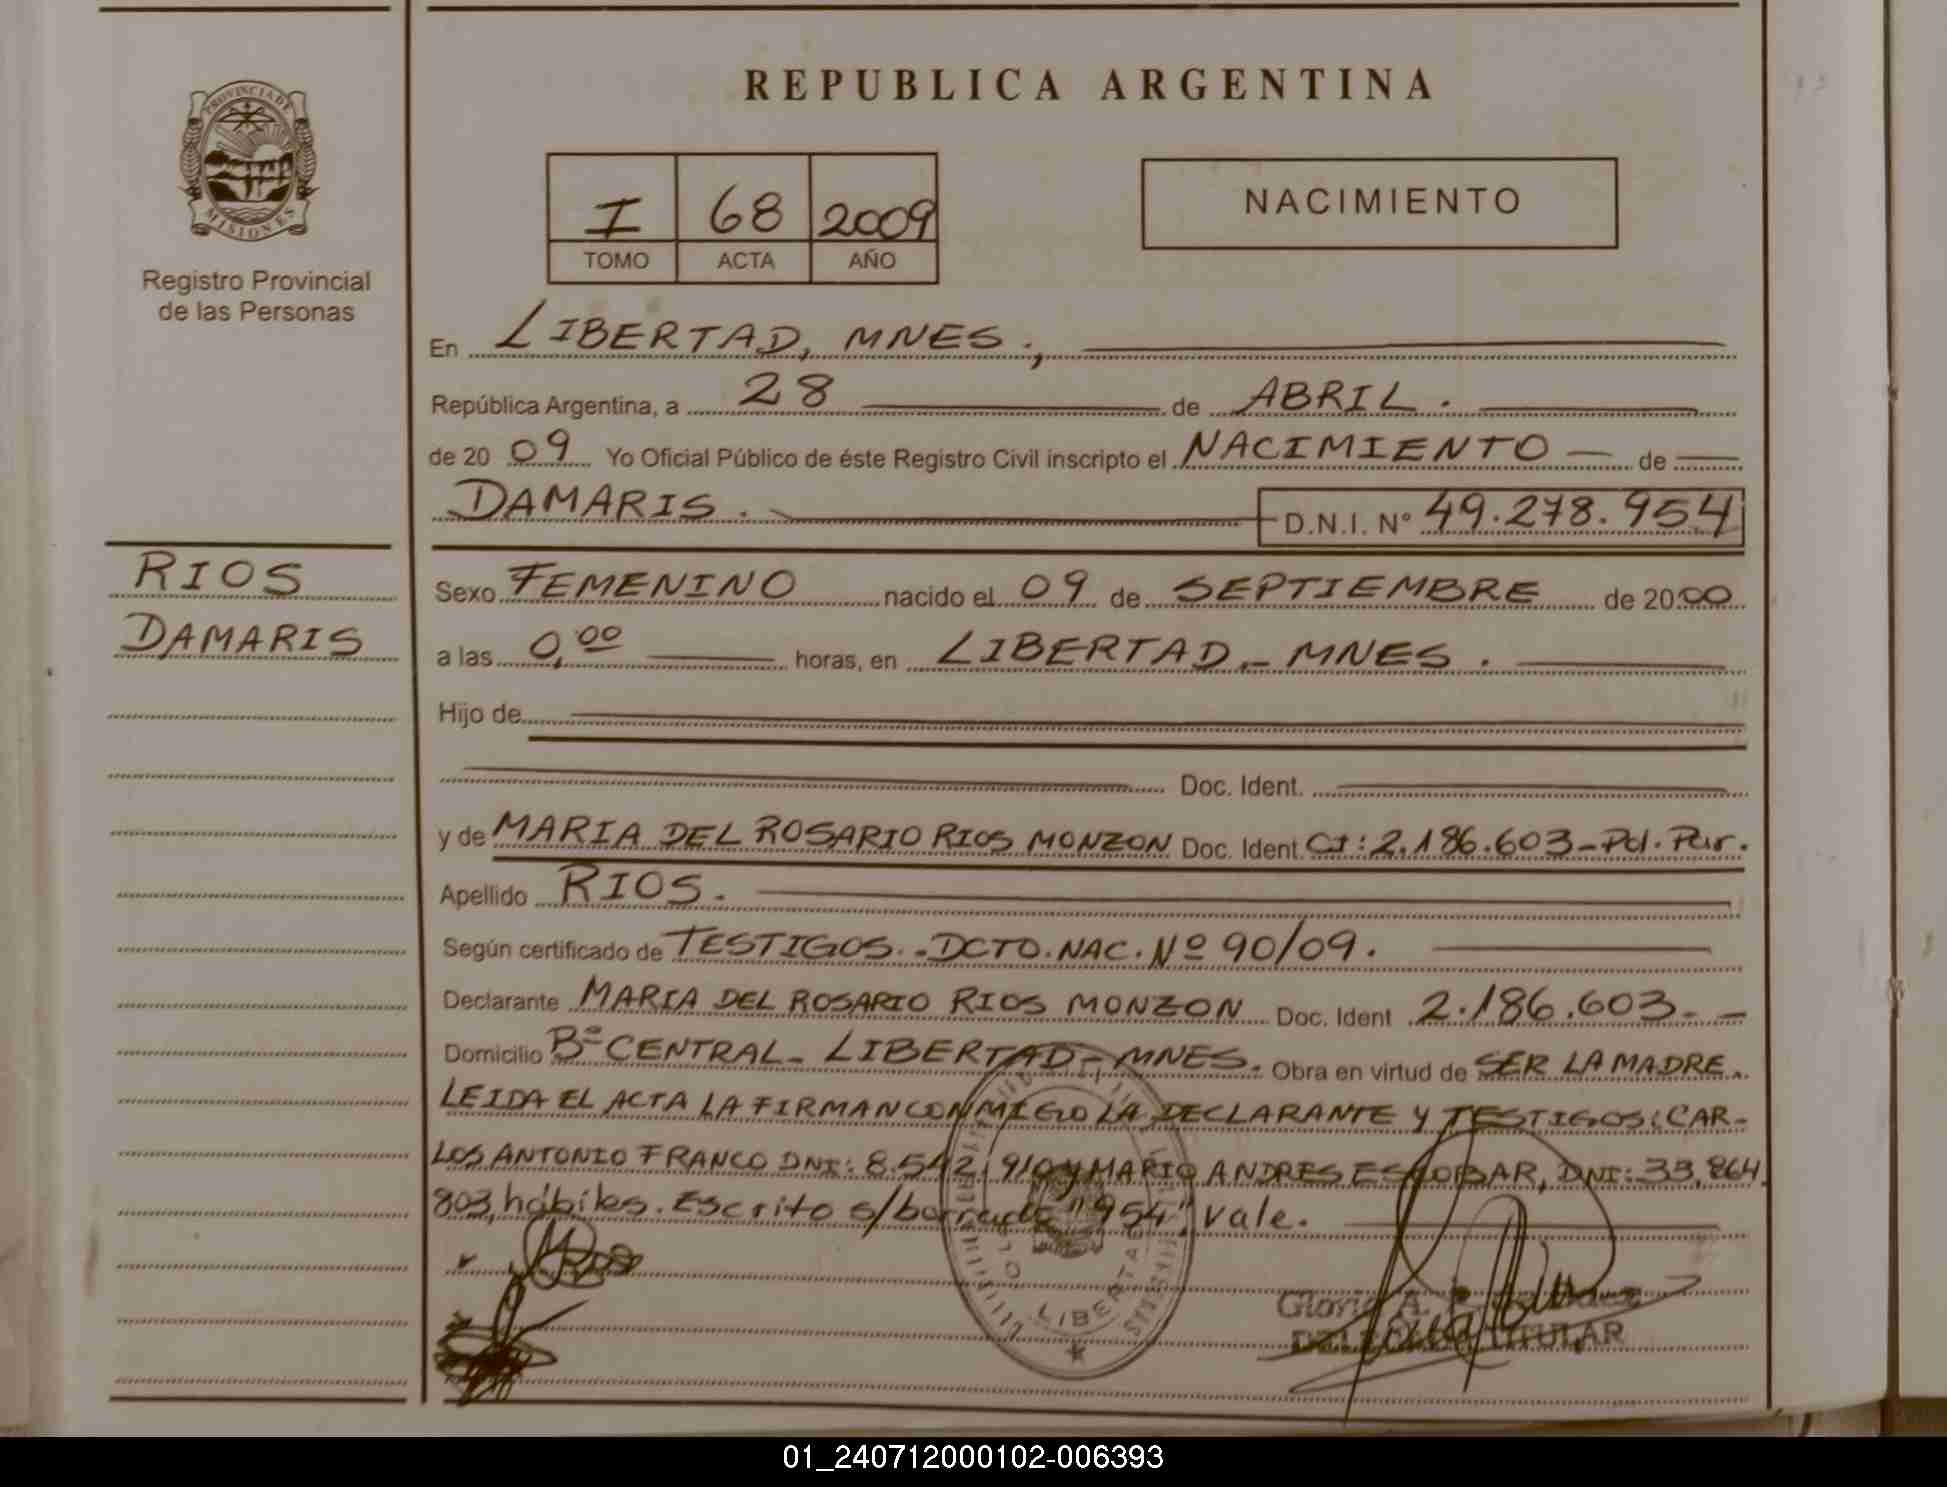 REPUBLICA ARGENTINA
PROVINCIA DE
MISIONES
Registro Provincial
de las Personas
I 68 2009
TOMO ACTA AÑO
NACIMIENTO
En LIBERTAD, MNES.,
República Argentina, a 28 de ABRIL.
de 20 09 Yo Oficial Público de éste Registro Civil inscripto el NACIMIENTO de
DAMARIS. D.N.I. N° 49.278.954
RIOS
DAMARIS
Sexo FEMENINO nacido el 09 de SEPTIEMBRE de 20 00
a las 0,00 horas, en LIBERTAD - MNES.
Hijo de
Doc. Ident.
y de MARIA DEL ROSARIO RIOS MONZON Doc. Ident. CI: 2.186.603-Pol. Par.
Apellido RIOS.
Según certificado de TESTIGOS.-DCTO. NAC. Nº 90/09.
Declarante MARIA DEL ROSARIO RIOS MONZON Doc. Ident 2.186.603.-
Domicilio Bº CENTRAL - LIBERTAD - MNES. Obra en virtud de SER LA MADRE.
LEIDA EL ACTA LA FIRMAN CONMIGO LA DECLARANTE Y TESTIGOS: CAR-
LOS ANTONIO FRANCO DNI: 8.542.910 y MARIO ANDRES ESCOBAR, DNI: 33.864.
803, hábiles. Escrito s/borrado "954" Vale.
LIBERTAD
Gloria A.
DELEGADA TITULAR
01_240712000102-006393